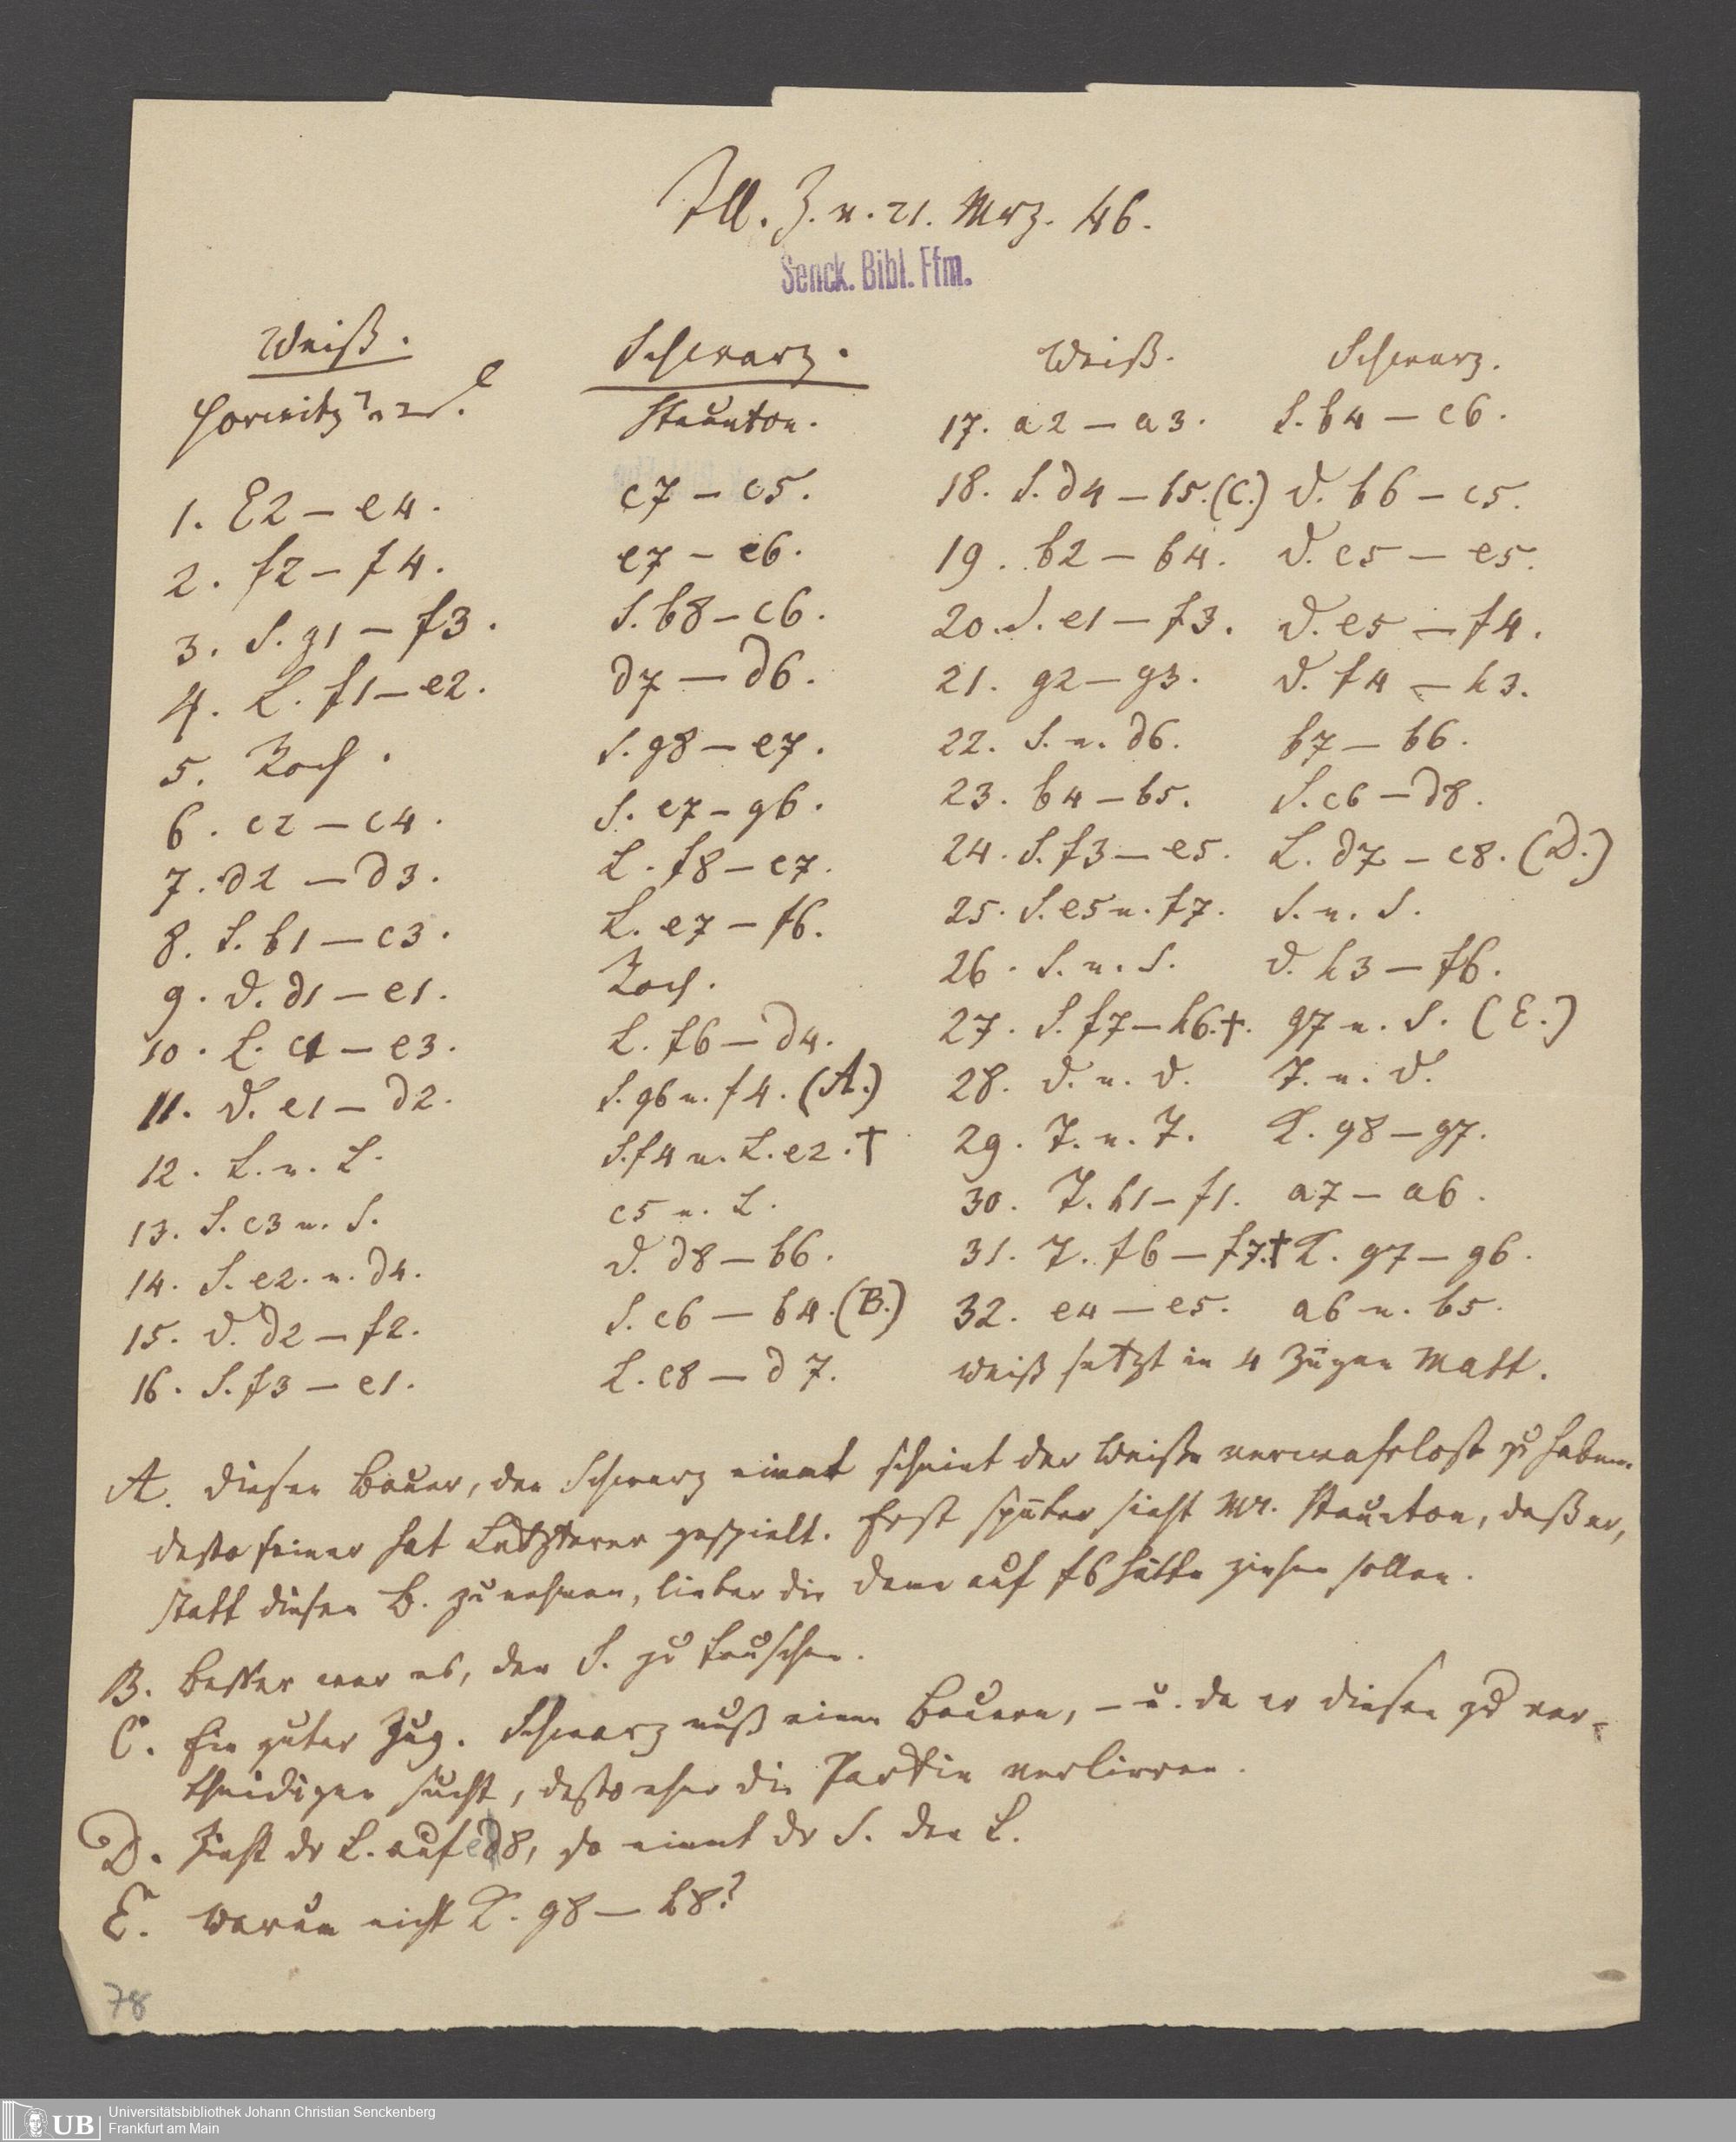 Ill. Z. v. 21. Mrz. 46.
Senck. Bibl. Ffm.
Weiß. Schwarz.
Horwitz Staunton.
1. E2 – e4. c7 – c5.
2. f2 – f4. e7 – e6.
3. S. g1 – f3. S. b8 – c6.
4. L. f1 – e2. d7 – d6.
5. Roch. S. g8 – e7.
6. c2 – c4. S. e7 – g6.
7. d2 – d3. L. f8 – e7.
8. S. b1 – c3. L. e7 – f6.
9. D. d1 – e1. Roch.
10. L. c1 – e3. L. f6 – d4.
11. D. e1 – d2. S. g6 n. f4. (A.)
12. L. n. L. S. f4 n. L. e2. †
13. S. c3 n. S. c5 n. L.
14. S. e2. n. d4. D. d8 – b6.
15. D. d2 – f2. S. c6 – b4. (B.)
16. S. f3 – e1. L. c8 – d7.
Weiß. Schwarz.
17. a2 – a3. S. b4 – c6.
18. S. d4 – b5. (C.) D. b6 – c5.
19. b2 – b4. D. c5 – e5.
20. S. e1 – f3. D. e5 – f4.
21. g2 – g3. D. f4 – h3.
22. S. n. d6. b7 – b6.
23. b4 – b5. S. c6 – d8.
24. S. f3 – e5. L. d7 – c8. (D.)
25. S. e5 n. f7. S. n. S.
26. S. n. S. D. h3 – f6.
27. S. f7 – h6. †. g7 n. S. (E.)
28. D. n. D. T. n. D.
29. T. n. T. K. g8 – g7.
30. T. h1 – f1. a7 – a6.
31. T. f6 – f7. † K. g7 – g6.
32. e4 – e5. a6 n. b5.
Weiß setzt in 4 Zügen Matt.
A. Diesen Bauer, den Schwarz nimmt scheint der Weiße verwahrlost zu haben.
desto feiner hat Letzterer gespielt. Erst später sieht Mr. Staunton, daß er,
statt diesen B. zu nehmen, lieber die Dame auf f6 hätte ziehen sollen.
B. Besser war es, den S. zu tauschen.
C. Ein guter Zug. Schwarz muß einen Bauern, – u. da er diesen zu ver-
theidigen sucht, desto eher die Partie verlieren.
D. Zieht dr L. auf e8, so nimmt dr S. den L.
E. Warum nicht K. g8 – h8?
78
UB Universitätsbibliothek Johann Christian Senckenberg
Frankfurt am Main